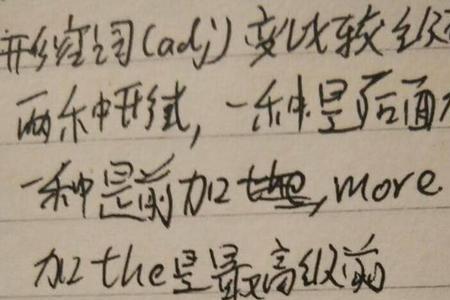 形容词(adj) 变比较级
两种形式，一种是后面
一种是前加 more
加 the 是最高级前